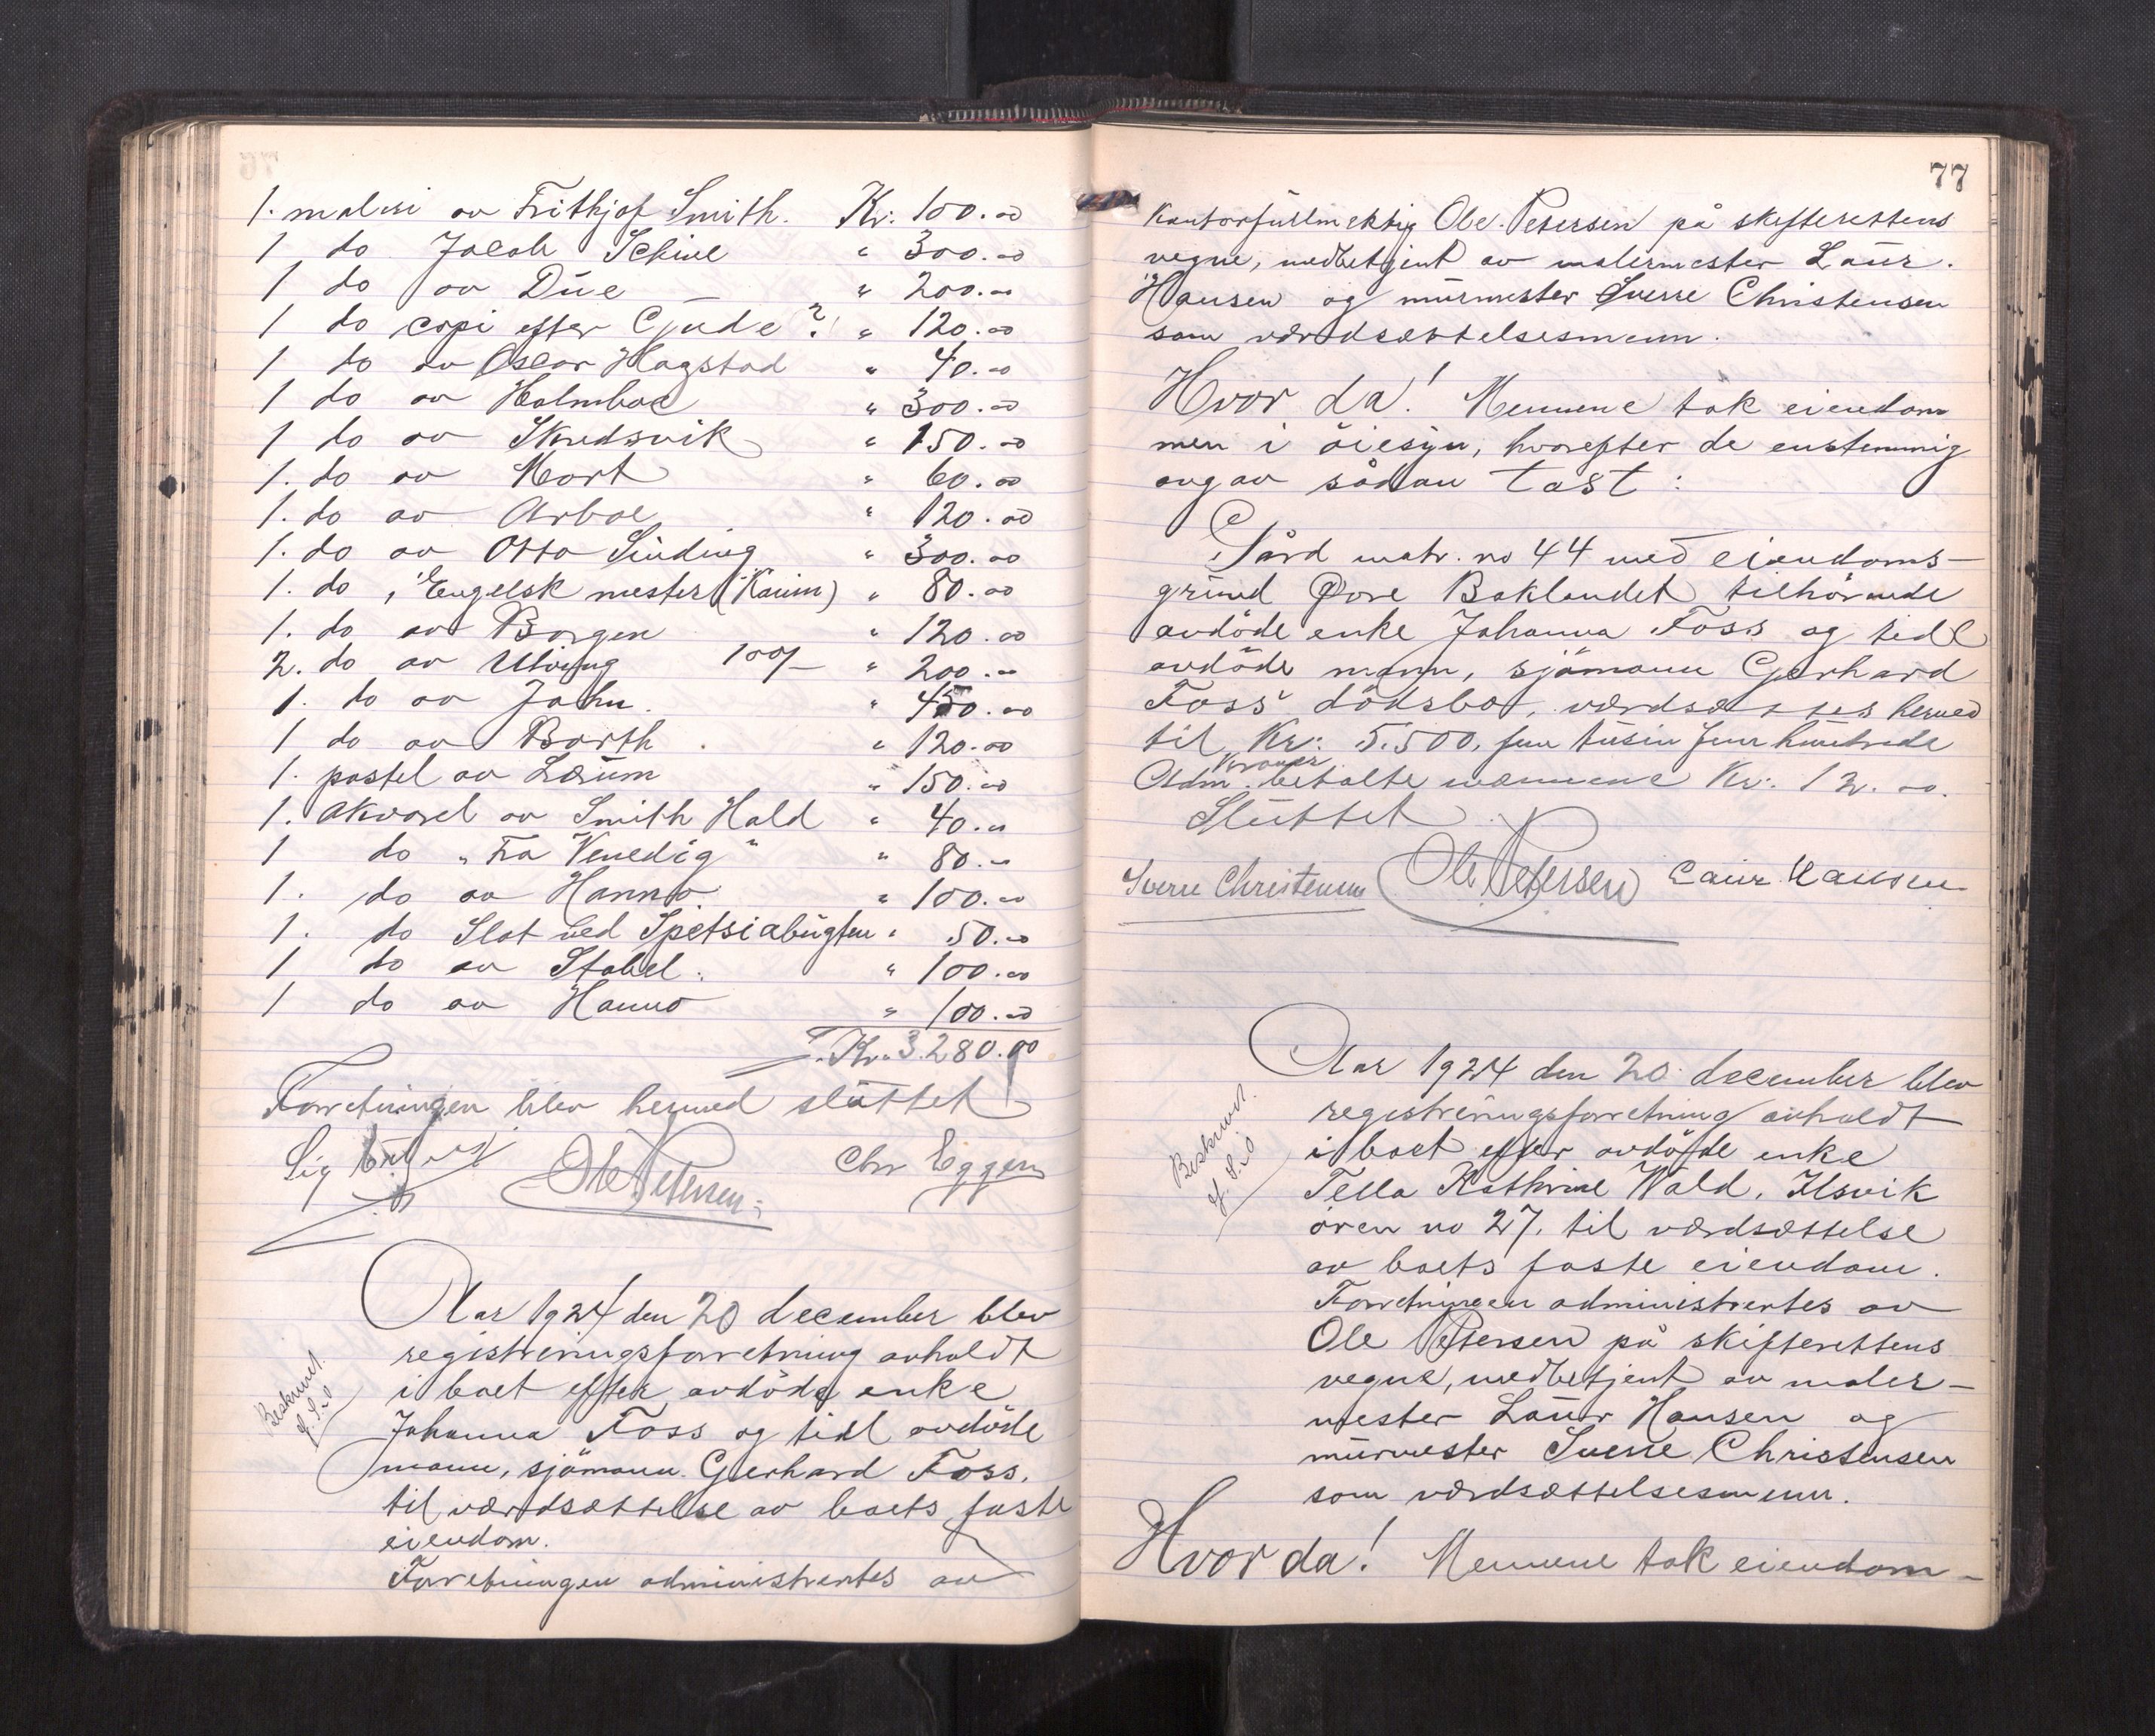 1. maleri av Frithjof Smith. Kr: 100.00
1 do Jacob Schive " 300.00
1 do av Düe — " 200.00
1 do copi efter Gude ?! " 120.00
1 do av Oscar Hagstad " 40.00
1 do av Holmboe " 300.00
1 do av Skredsvik " 150.00
1. do av " 60.00
1. do av Arboe " 120.00
1. do av Otto Sinding " 300.00
1. do, Engelsk mester " 80.00
1. do av Borgen " 120.00
2. do av Ulving 100/- " 200.00
1. do av Jahn. " 450.00
1 do av Barth. " 120.00
1. pastel av Lærum " 150.00
1. akvarel av Smith Hald " 40.00
1 do "Fra Venedig" " 80.00
1. do av Hanno " 100.00
1. do Slot ved Spetsiabugten " 50.00
1 do av Stabel. " 100.00
1 do av Hanno " 100.00
Kr. 3.280.00
Forretningen blev hermed slüttet
Sig Ole Petersen Chr Eggen
Aar 1924 den 20 december blev
registreringsforretning avholdt
i boet efter avdöde enke
Johanna Foss og tidl avdöde
mann, sjömann Gerhard Foss.
til værdsættelse av boets faste
eiendom.
Forretningen administrertes av
Beskrevet.
77
Kontorfüllmektig Ole Petersen på skifterettens
vegne, medbetjent av malermester Laür.
Hansen og mürmester Sverre Christensen
som værdsættelsesmenn.
Hvor da! Mennene tok eiendom
men i öiesyn, hvorefter de enstemmig
avgav sådan tast:
Gård matr. no 44 med eiendoms-
gründ Øvre Baklandet tilhörende
avdöde enke Johanna Foss og tidl
avdöde mann, sjömann Gerhard
Foss' dödsbo, værdsættes herved
til Kr: 5.500, fem tüsin fem hündrede
kroner
Adm. betalte mennene Kr: 12.00.
Slüttet.
Sverre Christensen Ole Petersen Laur. Hansen
Aar 1924 den 20. december blev
registreringsforretning avholdt
i boet efter avdöde enke
Tella Kathrine Wald, Ilsvik
ören no 27. til værdsættelse
av boets faste eiendom.
Forretningen administrertes av
Ole Petersen på skifterettens
vegne, medbetjent av maler-
mester Laür Hansen og
mürmester Sverre Christensen
som værdsættelsesmenn.
Hvor da! Mennene tok eiendom-
Beskrevet.